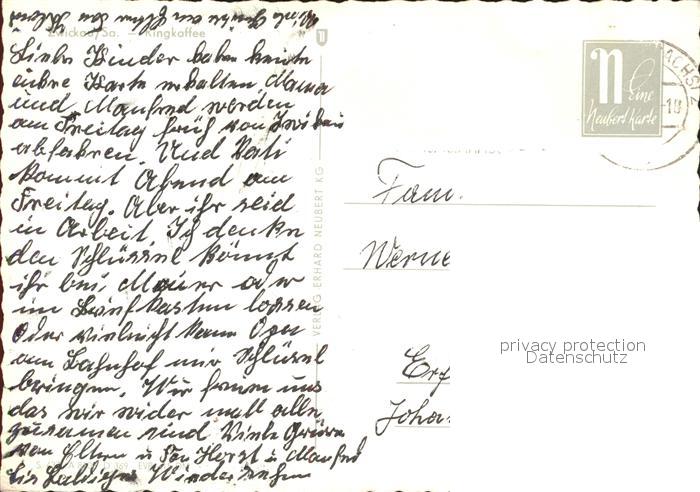 Zwickau/Sa. Ringkaffee
Liebe Kinder haben heute
eure Karte erhalten, Mama
und Manfred werden
am Freitag früh von Zwickau
abfahren. Und Vati
kommt Abend am
Freitag. Aber ihr seid
in Arbeit. Ich denke
den Schlüssel könnt
ihr bei Mauer oder
im Briefkasten lassen
Oder vielleicht kann Opa
am Bahnhof mir Schlüssel
bringen. Wir freuen uns
das wir wider mall alle
zusamen sind. Viele Grüse
von Eltern u Horst u Manfred
Bis Baldiges Wiedersehn
VERLAG ERHARD NEUBERT KG
Eine
Neubert Karte
Fam.
Werne
Erf
Joha
privacy protection
Datenschutz